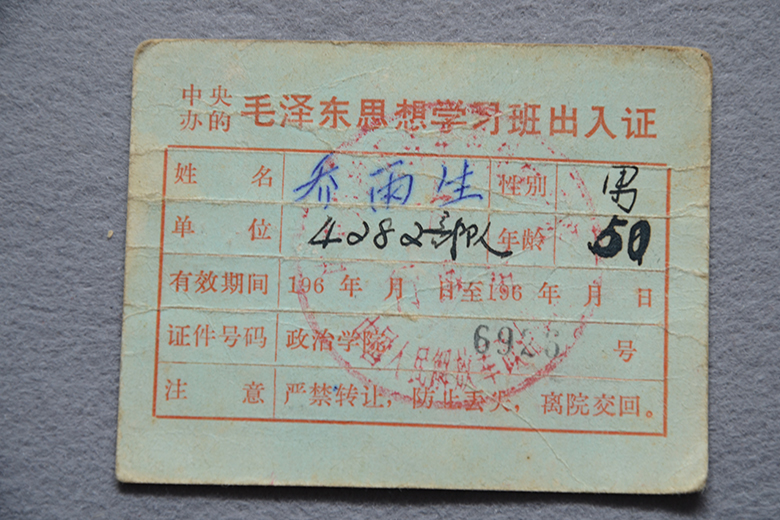 中央办的 毛泽东思想学习班出入证
姓名 乔雨生 性别 男
单位 4282部队 年龄 50
有效期间 196 年 月 日至196 年 月 日
证件号码 政治学院 6926 号
注意 严禁转让，防止丢失，离院交回。
人民解放军